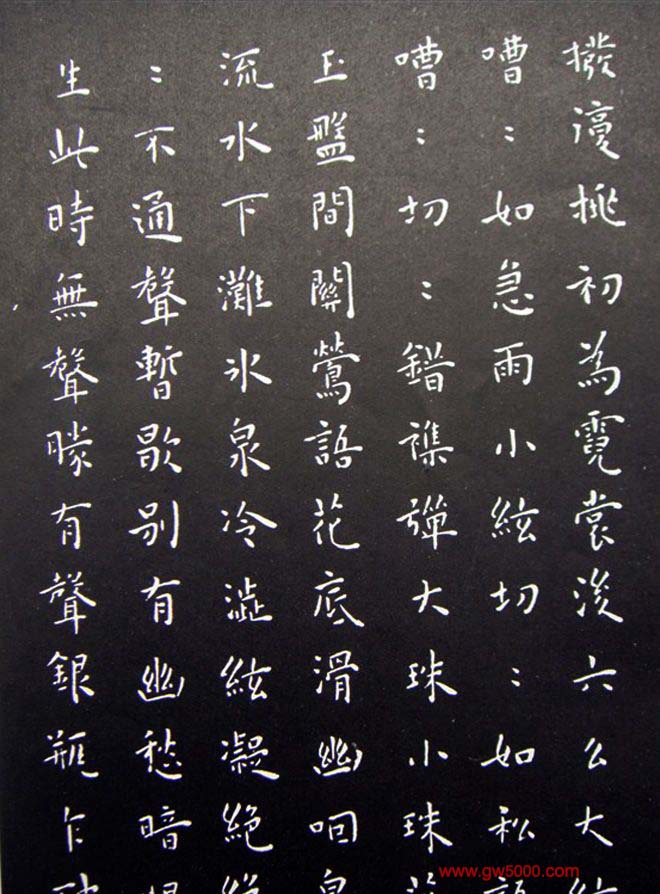 撥復挑初為霓裳後六么大
嘈:如急雨小絃切:如私語
嘈:切:錯雜彈大珠小珠落
玉盤間關鶯語花底滑幽咽泉
流水下灘氷泉冷澁絃凝絶
:不通聲暫歇別有幽愁暗恨
生此時無聲勝有聲銀瓶乍破
www.gw5000.com